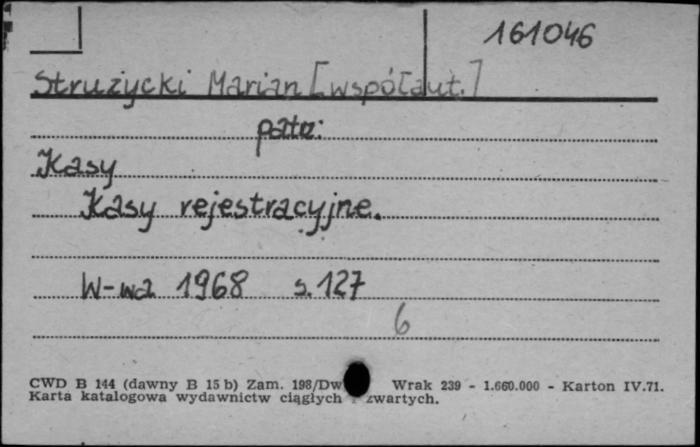 161046
Strużycki Marian [współaut.]
patrz:
Kasy
Kasy rejestracyjne.
W-wa 1968 s. 127
6
CWD B 144 (dawny B 15 b) Zam. 198/Dw Wrak 239 - 1.660.000 - Karton IV.71.
Karta katalogowa wydawnictw ciągłych i zwartych.